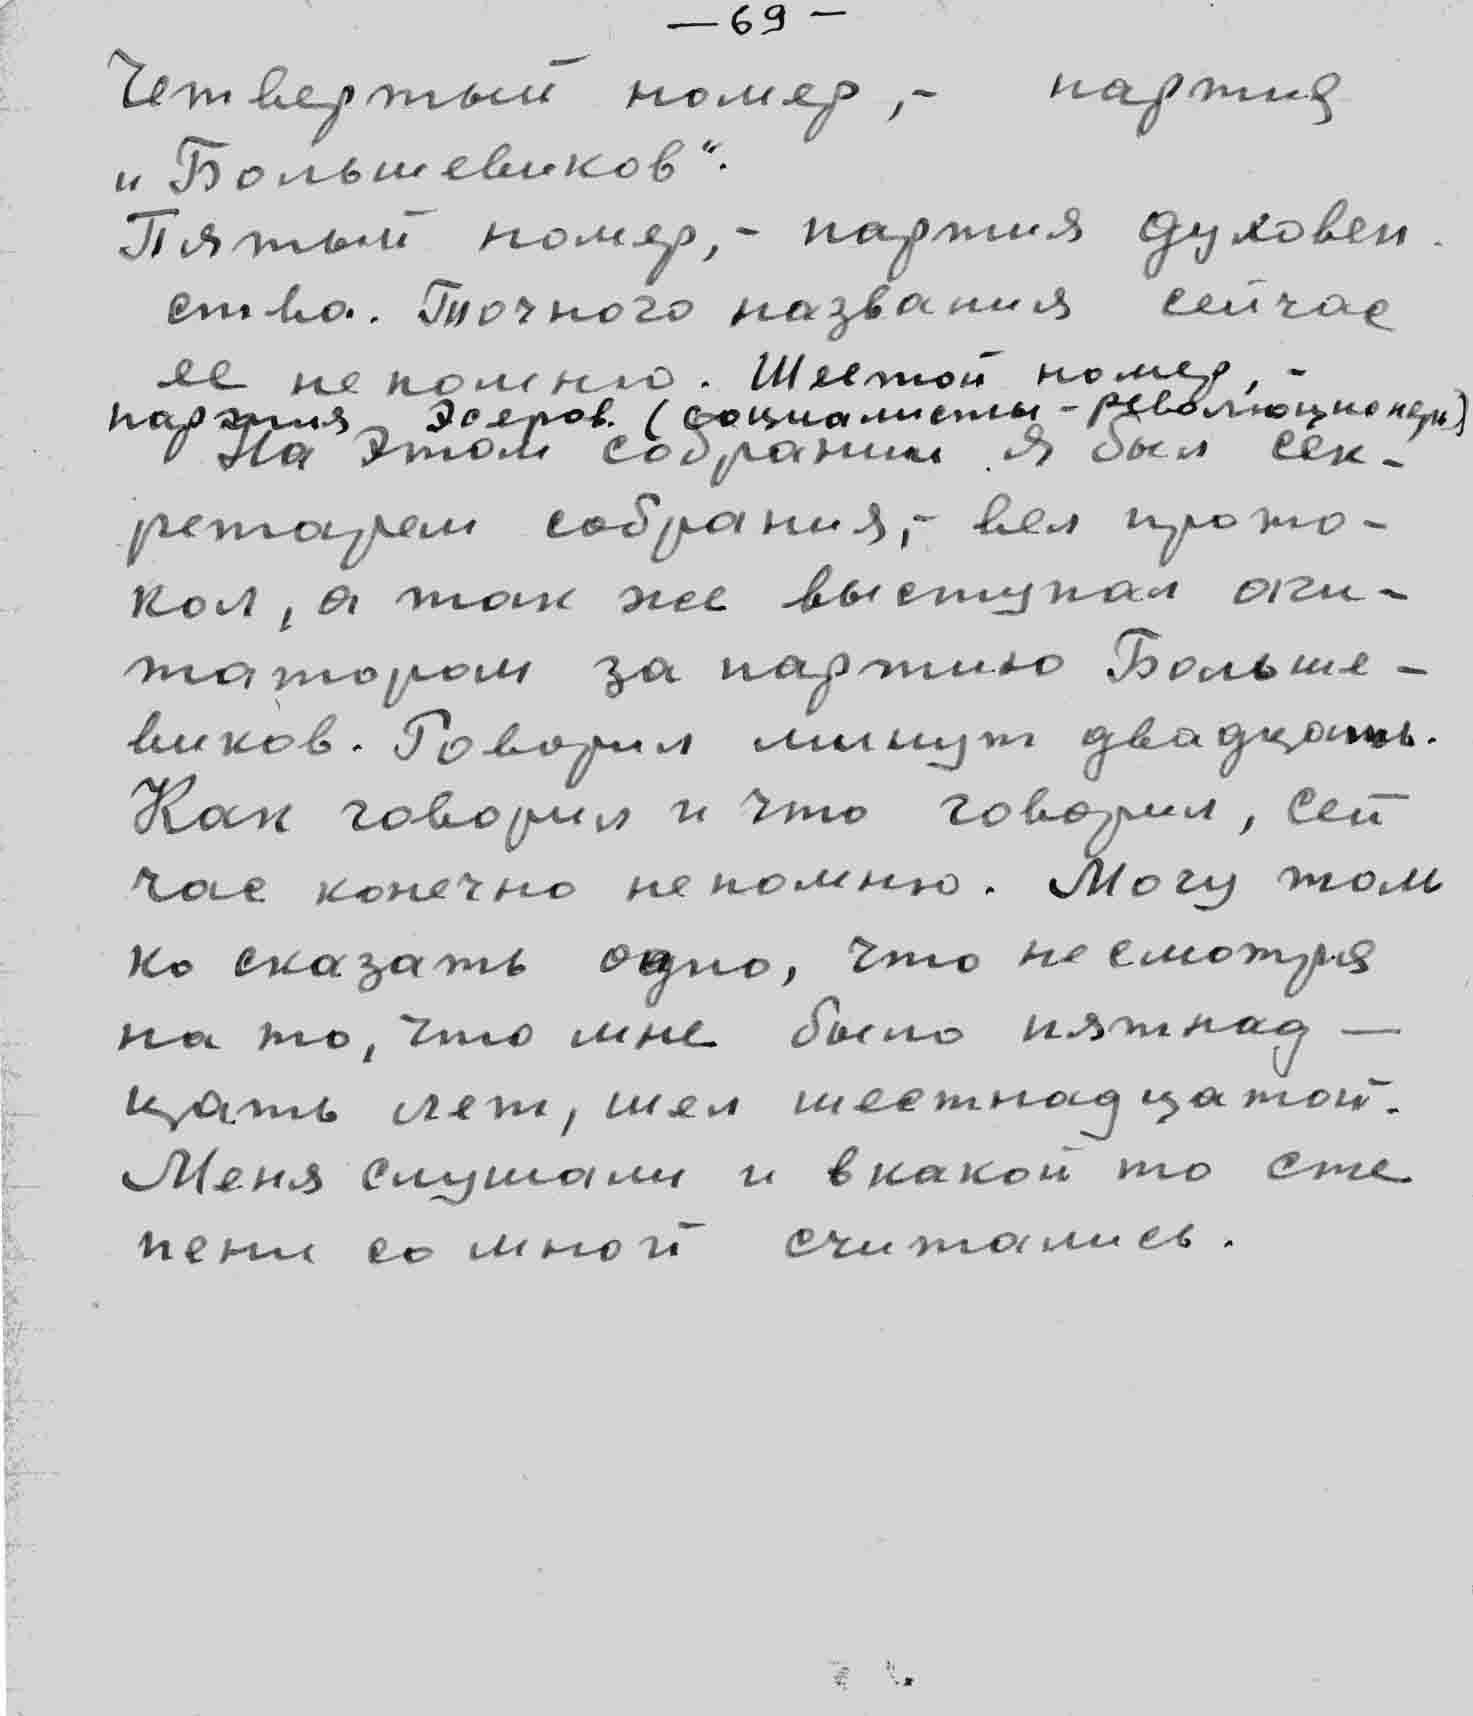 —69—
Четвертый номер,- партия
„Большевиков“.
Пятый номер,- партия духовен-
ства. Точного названия сейчас
ее непомню. Шестой номер,-
партия Эсеров. (социалисты-революционеры)
На этом собрании я был сек-
ретарем собрания,- вел прото-
кол, а так же выступал аги-
татором за партию Больше-
виков. Говорил минут двадцать.
Как говорил и что говорил, сей
час конечно непомню. Могу толь
ко сказать одно, что несмотря
на то, что мне было пятнад—
цать лет, шел шестнадцатой.
Меня слушали и вкакой то сте
пени со мной считались.